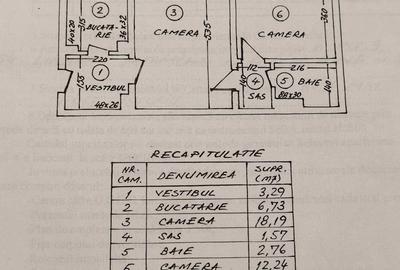 2
BUCATA-
RIE
40x20
315
36x32
220
3
CAMERA
535
6
CAMERA
360
1
VESTIBUL
155
48x26
112
216
140
4
SAS
5
BAIE
88x30
140
RECAPITULATIE
NR. CAM. DENUMIREA SUPR. (m²)
1 VESTIBUL 3,29
2 BUCATARIE 6,73
3 CAMERA 18,19
4 SAS 1,57
5 BAIE 2,76
6 CAMERA 12,24